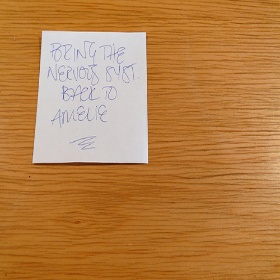 BRING THE
NERVOUS SYST.
BACK TO
AMELIE